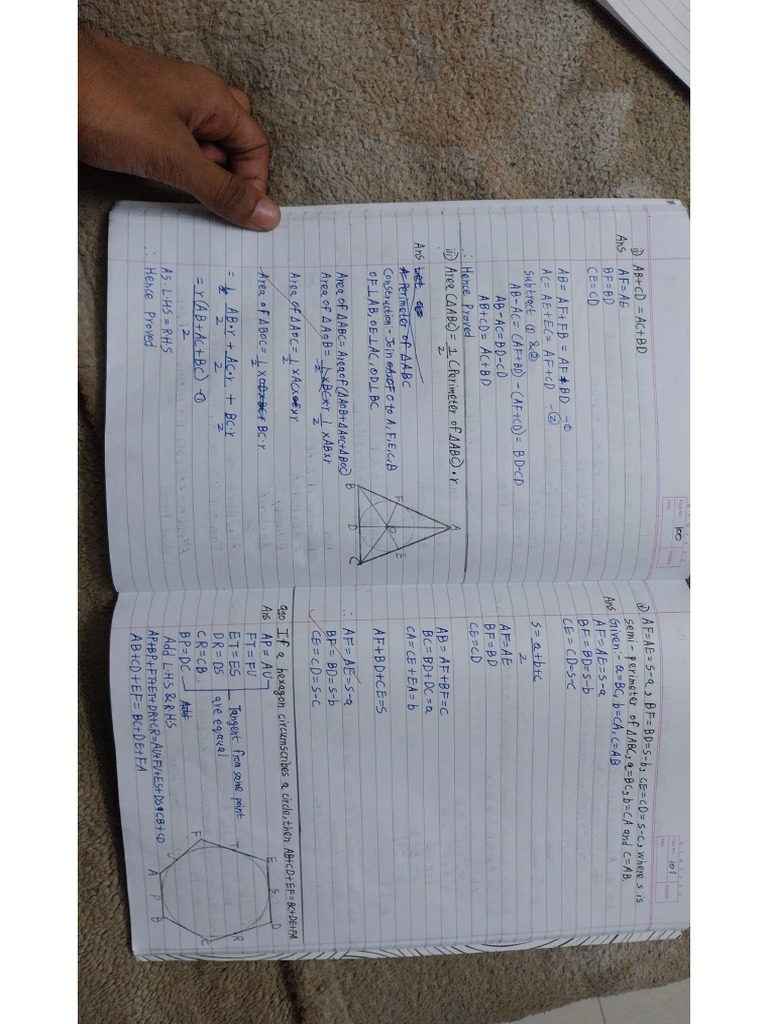 100
ii) AB+CD = AC+BD
Ans AF=AE
BF=BD
CE=CD
AB = AF+FB = AF+BD -①
AC = AE+EC = AF+CD -②
Subtract ① & ②
AB-AC = (AF+BD) - (AF+CD) = BD-CD
AB-AC=BD-CD
AB+CD = AC+BD
∴ Hence Proved
iii) Area (ΔABC) = 1/2 (Perimeter of ΔABC) · r
Ans
Perimeter of ΔABC
Construction:- Join O to A, F, E, C, B
OF⊥AB, OE⊥AC, OD⊥BC
Area of ΔABC = Area of (ΔAOB + ΔAOC + ΔBOC)
Area of ΔAOB = 1/2 × AB×r
Area of ΔAOC = 1/2 × AC × r
Area of ΔBOC = 1/2 × BC·r
= AB·r/2 + AC·r/2 + BC·r/2
= r(AB+AC+BC)/2 -①
AS. LHS = RHS
∴ Hence Proved
A
F
E
O
B
D
C
101
iv) AF=AE=s-a, BF=BD=s-b, CE=CD=s-c, where s is
semi-perimeter of ΔABC, a=BC, b=CA and c=AB.
Ans Given:- a=BC, b=CA, c=AB
AF=AE=s-a
BF=BD=s-b
CE=CD=s-c
s = a+b+c/2
AF=AE
BF=BD
CE=CD
AB = AF+BF=c
BC = BD+DC=a
CA=CE+EA=b
AF+BD+CE=s
∴ AF=AE=s-a
BF=BD=s-b
CE=CD=s-c
Q10 If a hexagon circumscribes a circle, then AB+CD+EF=BC+DE+FA
Ans AP=AU
FT=FU
ET=ES Tangent from same point
DR=DS are equal
CR=CB
BP=DC
Add LHS & RHS
AP+BP+FT+ET+DR+CR=AU+FU+ES+DS+CB+CD
AB+CD+EF=BC+DE+FA
E
S
D
T
R
F
C
U
A
P
B